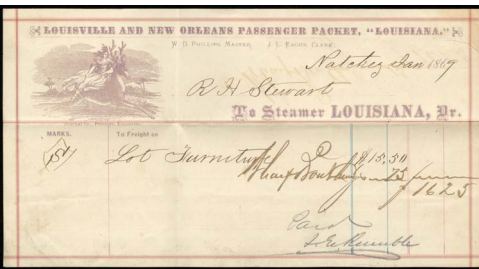 LOUISVILLE AND NEW ORLEANS PASSENGER PACKET, "LOUISIANA."
W. B. PHILLIPS MASTER, J. E. CLERK.
Natchez Jan 1869
R H Stewart
To Steamer LOUISIANA, Dr.
MARKS. To Freight on
Lot Furniture $15.50
75
$16 25
Paid